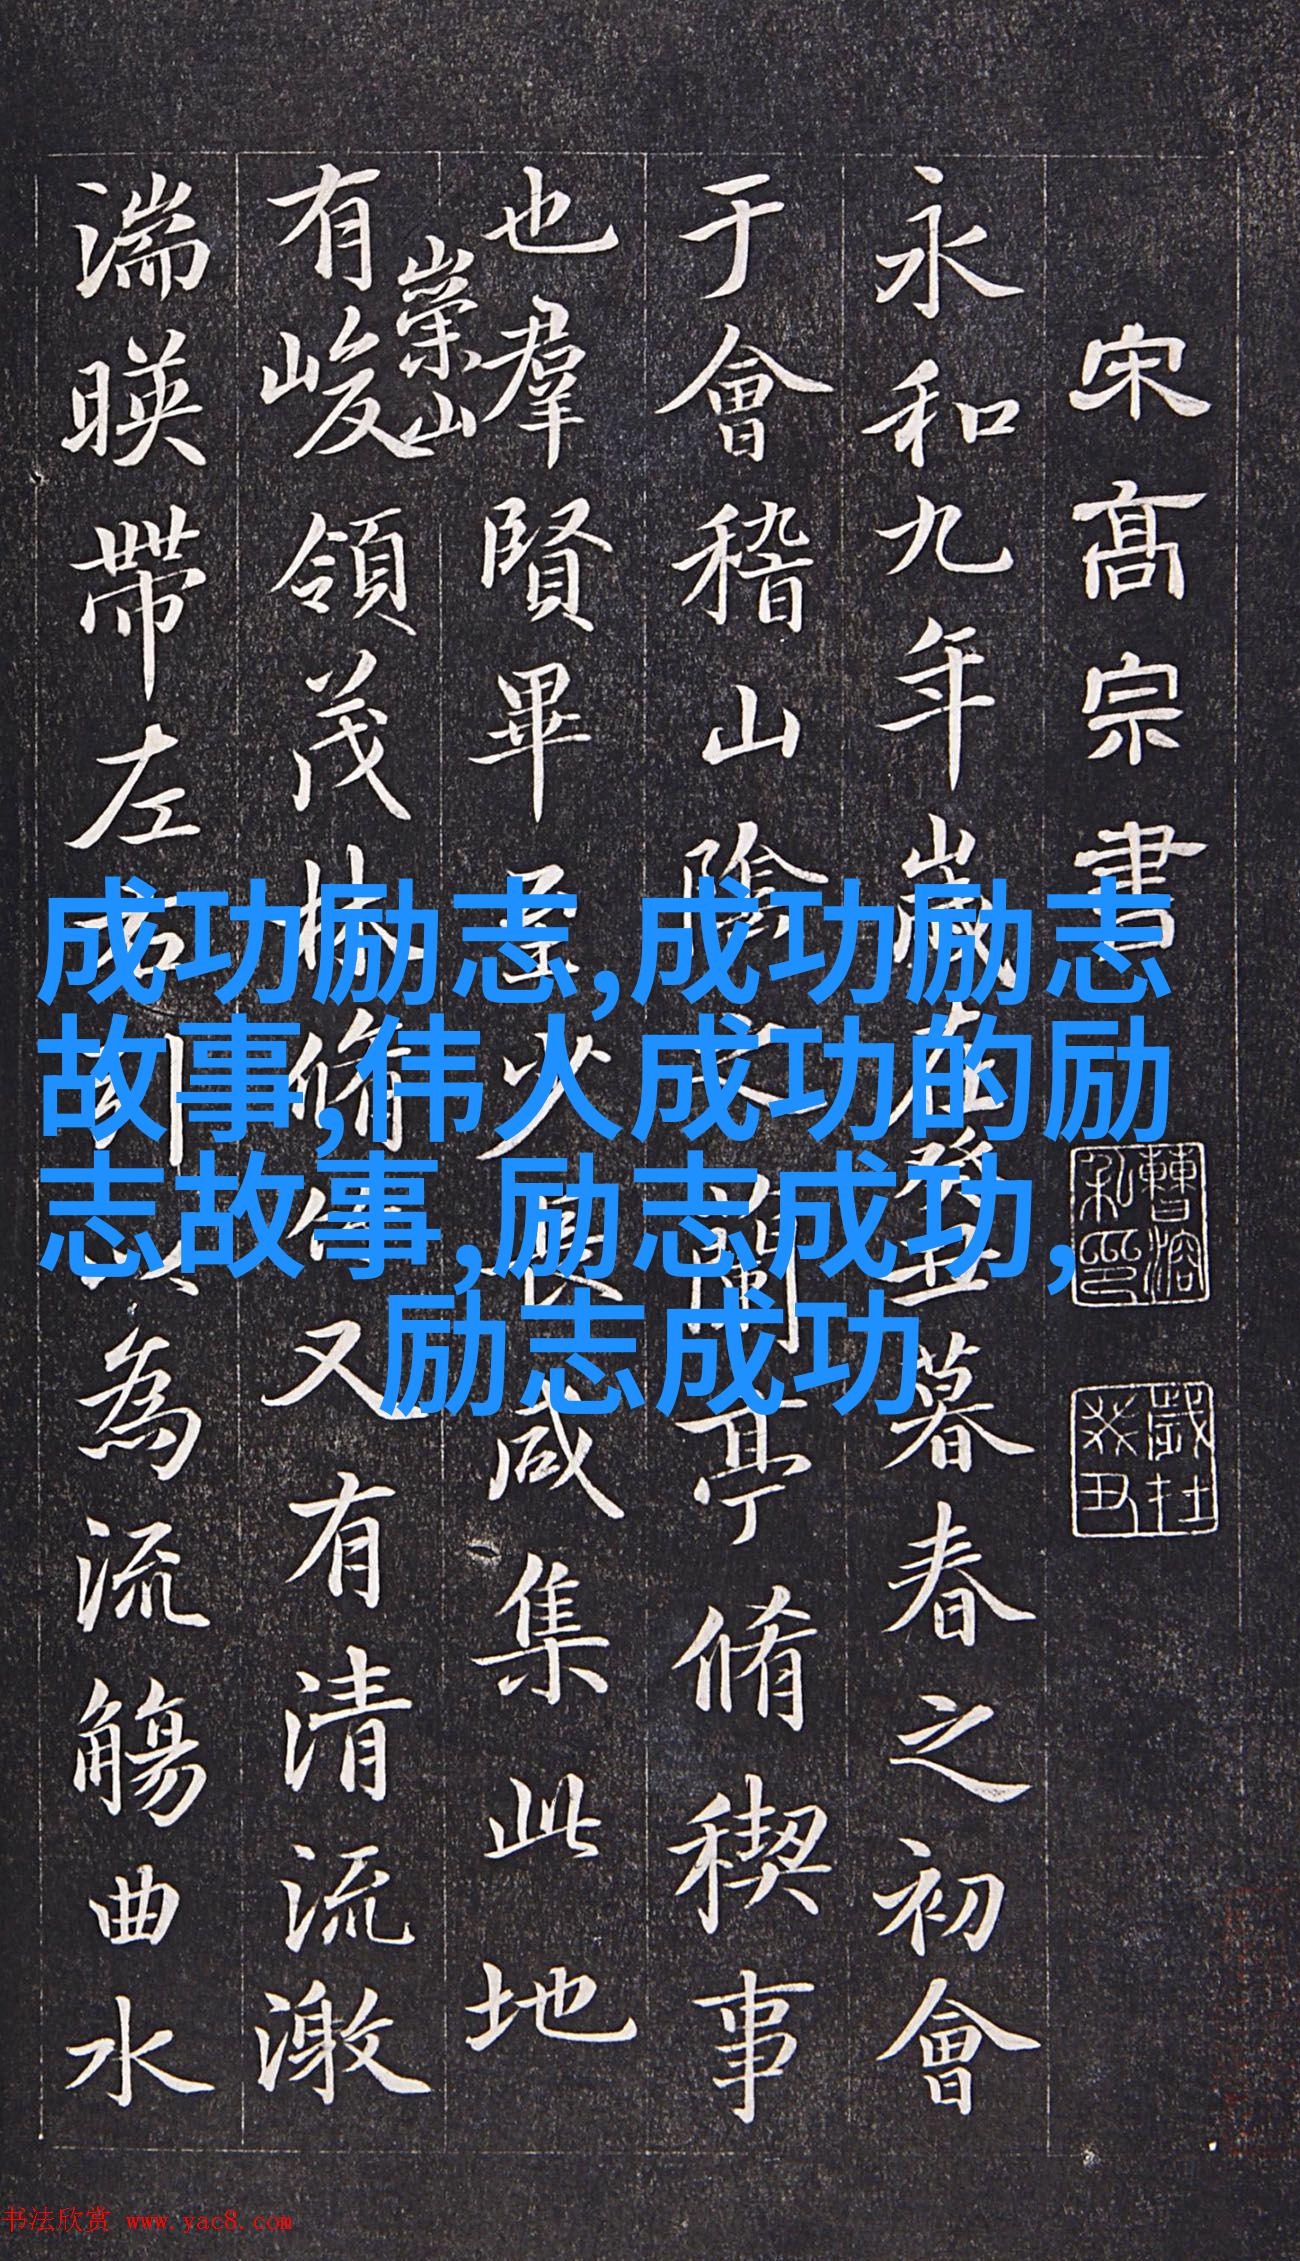 宋高宗書
曹溶私印
歲在癸丑
永和九年歲在癸丑暮春之初會
于會稽山陰之蘭亭脩稧事
也羣賢畢至少長咸集此地
崇山
有峻領茂林脩竹又有清流激
湍暎帶左右引以為流觴曲水
成功励志,成功励志
故事,伟人成功的励
志故事,励志成功,
励志成功
书法欣赏 www.yac8.com